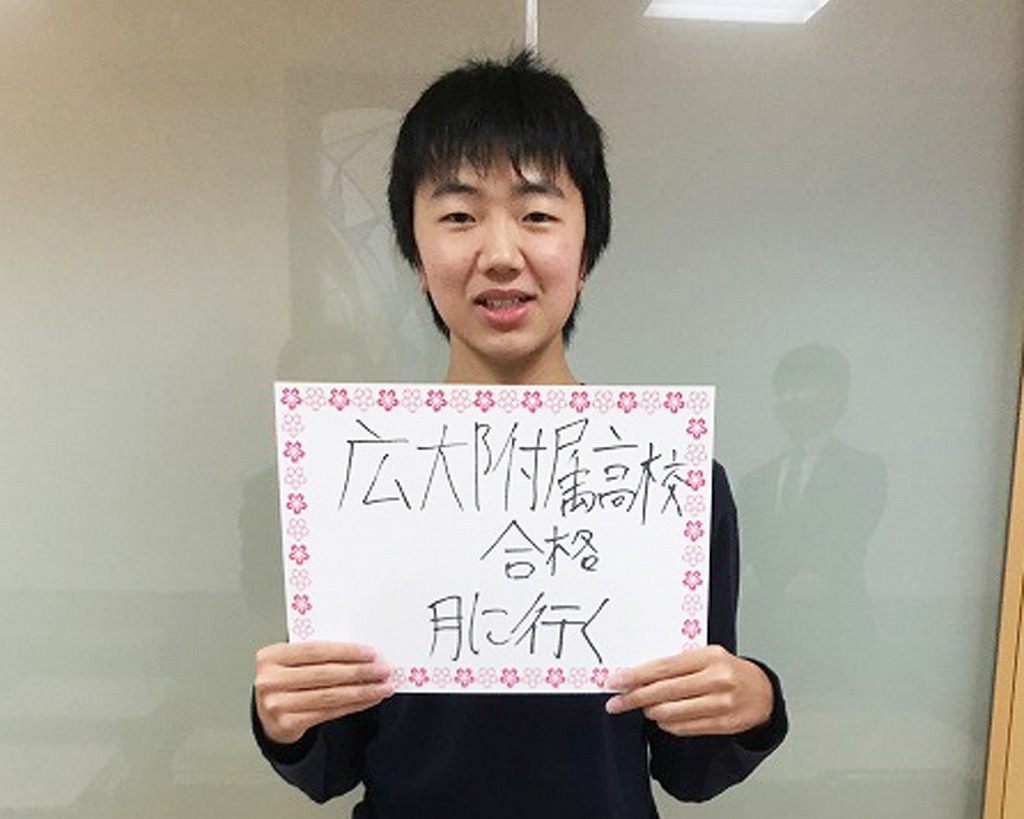 広大附属高校
合格
月に行く